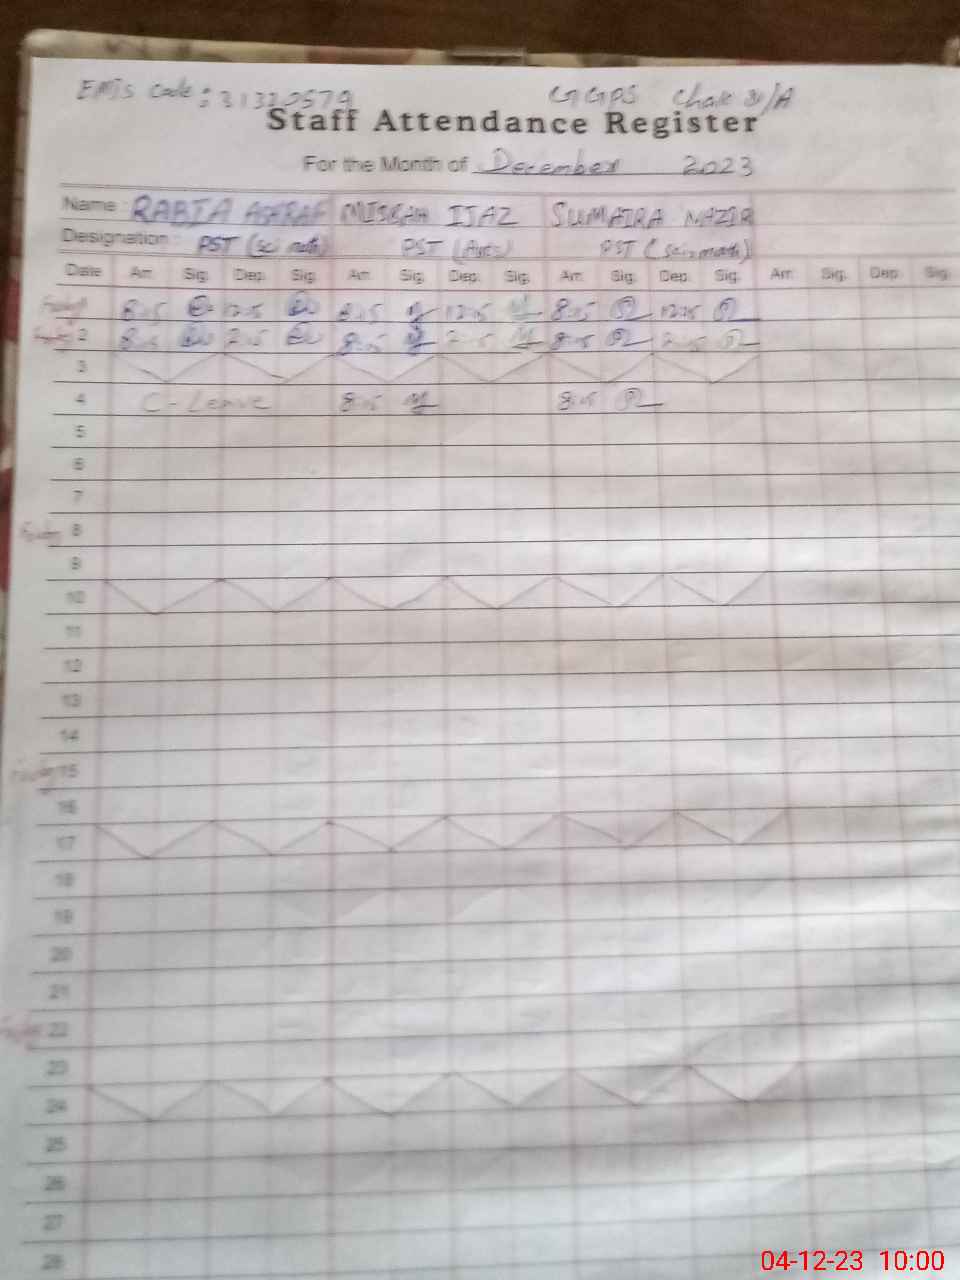 EMIS Code: 31320579 GGPS Chak
Staff Attendance Register
For the Month of December 2023
Name: RABIA ASHRAF MISBAH IJAZ SUMAIRA NAZIR
Designation: PST (Sci math) PST (Arts) PST (Sci math)
Date Arr. Sig. Dep. Sig. Arr. Sig. Dep. Sig. Arr. Sig. Dep. Sig. Arr. Sig. Dep. Sig.
8:15 12:15 8:15 12:15 8:15 12:15
2 8:15 2:15 8:15 2:15 8:15 2:15
3
4 C-Leave 8:15 8:15
5
6
7
Friday 8
9
10
11
12
13
14
Friday 15
16
17
18
19
20
21
22
23
24
25
26
27
28
04-12-23 10:00